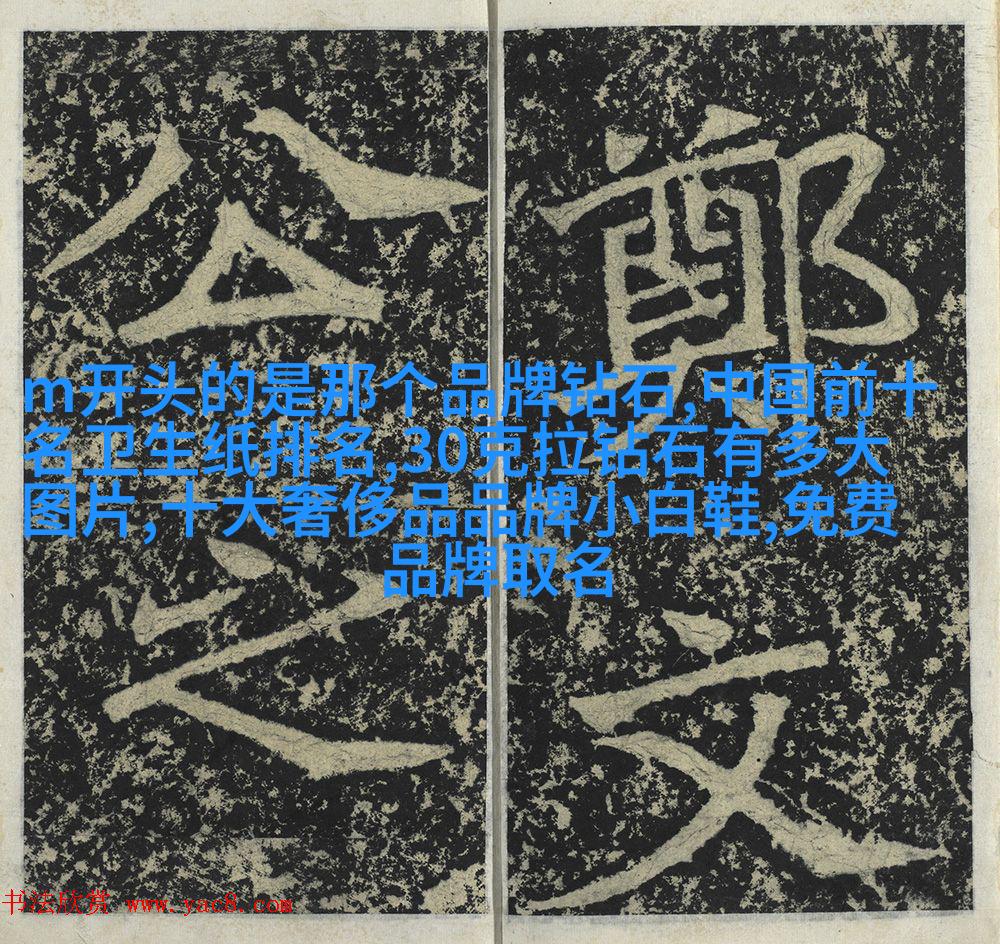 鄭文
公之
m开头的是那个品牌钻石,中国前十
名卫生纸排名,30克拉钻石有多大
图片,十大奢侈品品牌小白鞋,免费
品牌取名
书法欣赏 www.yac8.com